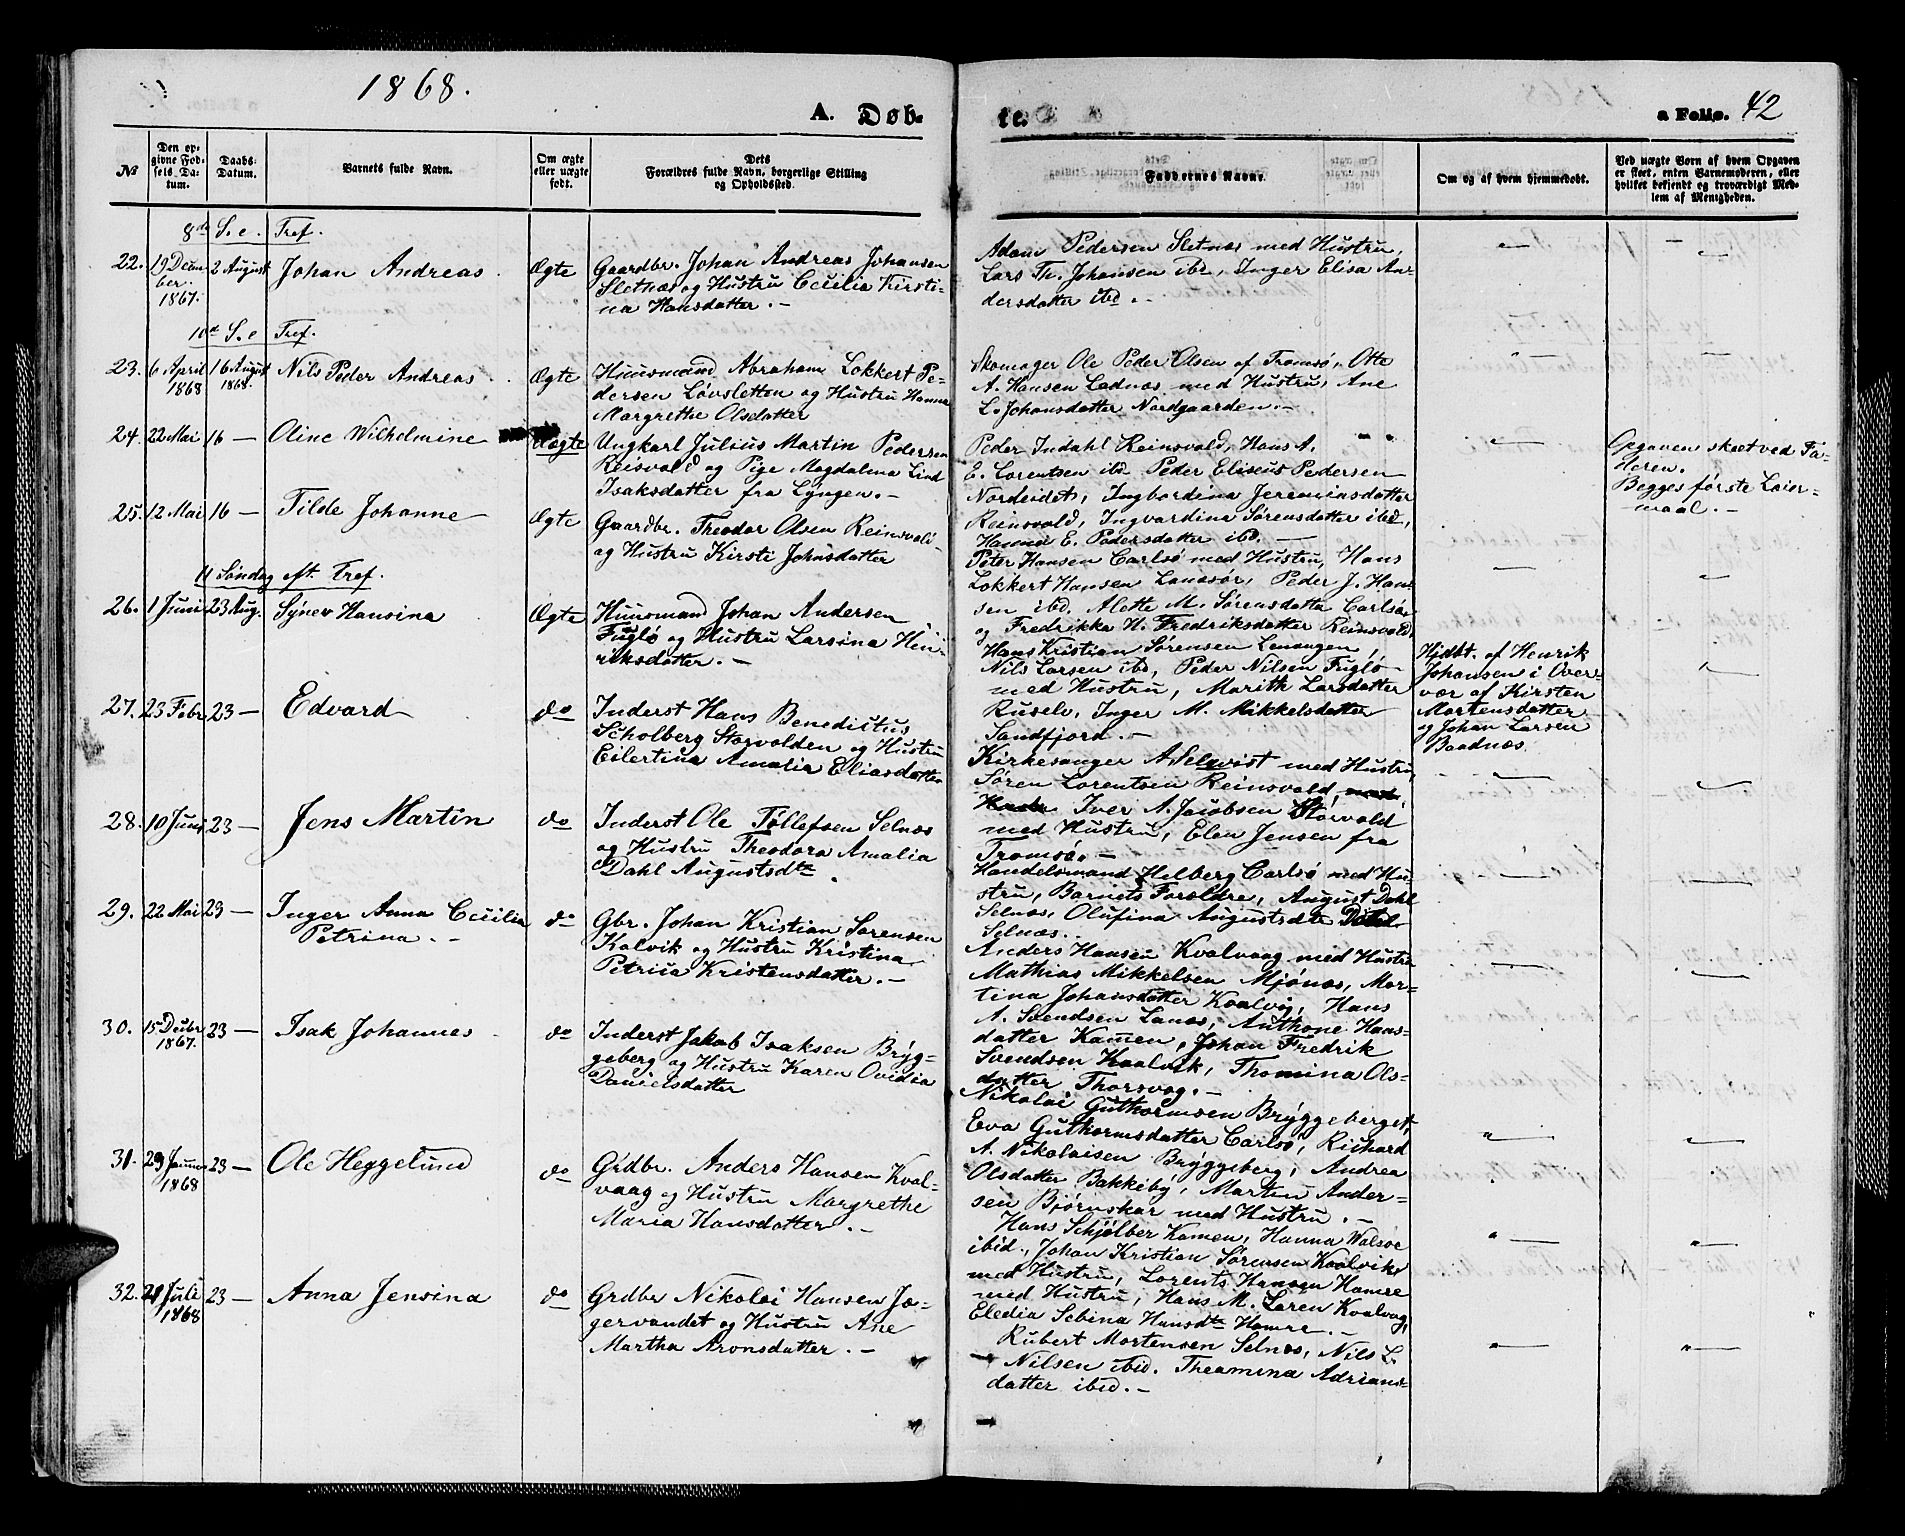 1868.
A. Døb-
te.
a Folio. 42
No
Den op-
givne Fød-
sels Da-
tum.
Daabs-
Datum.
Barnets fulde Navn.
Om ægte
eller uægte
født.
Dets
Forældres fulde Navn, borgerlige Stilling
og Opholdssted.
Faddernes Navne.
Om og af hvem hjemmedøbt.
Ved uægte Børn af hvem Opgaven
er skeet, enten Barnemoderen, eller
hvilket bekjendt og troværdigt Med-
lem af Menigheden.
8de S. e. Tref.
22. 19 Decem- 2 August Johan Andreas. Ægte Gaardbr. Johan Andreas Johansen
ber. Sletnæs og Hustru Cecilia Kirsti-
1867. na Hansdatter. -
Adam Pedersen Sletnæs med Hustru,
Lars Th. Johansen ibd, Inger Elisa An-
dersdatter ibd. -
10de S. e Tref.
23. 6 April 16 August Nils Peder Andreas. Ægte Huusmand Abraham Lokkert Pe-
1868 1868. dersen Løvsletten og Hustru Hanna
Margrethe Olsdatter
Skomager Ole Peder Olsen af Tromsø, Otte
A. Hansen Ladnæs med Hustru, Ane
L. Johansdatter Nordgaarden. -
24. 22 Mai 16 — Oline Wilhelmine Uægte Ungkarl Julius Martin Pedersen
Reisvold og Pige Magdalena Lind
Isaksdatter fra Lyngen. -
Peder Indahl Reinsvold, Hans A.
E. Lorentsen ibd. Peder Eliseus Pedersen
Nordeidet, Ingbordina Jeremiasdatter
Reinsvold, Ingvardina Sørensdatter ibd,
Hanna E. Pedersdatter ibd. -
Opgaven skeet ved Fa-
deren.
Begges første Leier-
maal. -
25. 12 Mai 16 — Tilde Johanne Ægte Gaardbr. Theodor Olsen Reinsvold
og Hustru Kirsti Johnsdatter
Peter Hansen Carlsø med Hustru, Hans
Lokkert Hansen Lanesør, Peder J. Han-
sen ibd. Alette M. Sørensdatter Carlsø
og Fredrikka H. Fredriksdatter Reinsvold
11 Søndag eft. Tref.
26. 1 Juni 23 Aug. Synev Hansina Ægte Huusmand Johan Andersen
Fuglø og Hustru Larsina Hen-
riksdatter. -
Hans Kristian Sørensen Lenangen,
Nils Larsen ibd, Peder Nilsen Fuglø
med Hustru, Marith Larsdatter
Ruselv, Inger M. Mikkelsdatter
Sandfjord. -
27. 23 Febr 23 — Edvard do Inderst Hans Benedictus
Scholberg Storvolden og Hustru
Eilertina Amalia Eliasdatter
Kirkesanger A. Selqvist med Hustru,
Søren Lorentsen Reinsvold,
Iver A. Jacobsen Storvold
med Hustru, Elen Jensen fra
Tromsø. -
Hjdbt. af Henrik
Johansen i Over-
vær af Kirsten
Mortensdatter
og Johan Larsen
Baadnæs.
28. 10 Juni 23 — Jens Martin do Inderst Ole Tøllefsen Selnæs
og Hustru Theodora Amalia
Dahl Augustsdtr.
Handelsmand Helberg Carlsø med Hu-
stru, Barnets Forældre, August Dahl
Selnæs, Olufina Augustsdtr Dahl
Selnæs.
29. 22 Mai 23 — Inger Anna Cecilia do Gbr. Johan Kristian Sørensen
Petrina. - Kalvik og Hustru Kristina
Petrica Kristensdatter. -
Anders Hansen Kvalvaag med Hustru
Mathias Mikkelsen Mjønæs, Mar-
tina Johansdatter Koalvig, Hans
A. Svendsen Lanæs, Anthone Hans-
datter Kamen, Johan Fredrik
Svendsen Koalvik, Thomina Ols-
datter Thorsvog. -
30. 15 Decbr 23 — Isak Johannes do Inderst Jakob Isaksen Bryg-
1867. geberg og Hustru Karen Ovidia
Danielsdatter
Nikolai Guthormsen Bryggeberget,
Eva Guthormsdatter Carlsø, Richard
A. Nikolaisen Bryggeberg, Andrea
Olsdatter Bakkeby, Marten Ander-
sen Bjørnskar med Hustru. -
31. 29 Januar 23 — Ole Heggelund do Grdbr. Anders Hansen Kval-
1868 vaag og Hustru Margrethe
Maria Hansdatter. -
Hans Schjølber Kamen, Hanna Walsøe
ibid., Johan Kristian Sørensen Koalvik
med Hustru, Lorents Hansen Hamre
med Hustru, Hans M. Loren Kvalvog,
Eledia Sebina Hansdtr Hamre. -
32. 28 Juli 23 — Anna Jensina do Grdbr Nikolai Hansen Jæ-
1868 gervandet og Hustru Ane
Martha Aronsdatter. -
Rubert Mortensen Selnæs, Nils L.
Nilsen ibid. Theamina Adrians-
datter ibid. -